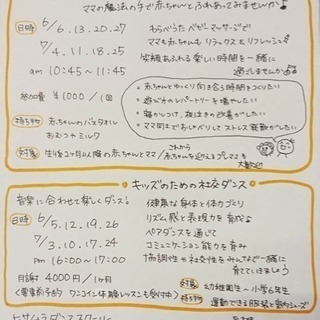 ママの魔法の手で赤ちゃんとふれあってみませんか♪
日時 6/6.13.20.27
7/4.11.18.25
am 10:45～11:45
参加費 ¥1000／1回
持ち物 赤ちゃんのバスタオル
おむつ・ミルク
対象 生後2ヶ月以降の赤ちゃんとママ／これから赤ちゃんを迎えるプレママも
わらべうたベビーマッサージで
ママも赤ちゃんもリラックス＆リフレッシュ♪
笑顔あふれる楽しい時間を一緒に
過ごしませんか
・赤ちゃんとゆっくり向き合う時間をつくりたい
・遊びのレパートリーを増やしたい
・寝かしつけ、夜泣きの改善がしたい
・ママ同士でおしゃべりしてストレス発散がしたい
キッズのための社交ダンス
音楽に合わせて楽しくダンス♪
日時 6/5.12.19.26
7/3.10.17.24
pm 16:00～17:00
月謝 4000円／1ヶ月
健康な身体と体力づくり
リズム感と表現力を育成♪
ペアダンスを通じて
コミュニケーション能力を育み
協調性や社交性をみんなで一緒に
育てていきましょう
対象 幼稚園生～小学6年生
持ち物
ヒサムラダンススクール